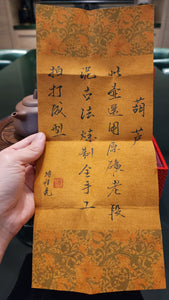 葫芦
此壶选用原矿老段
泥古法炼制全手工
拍打成型